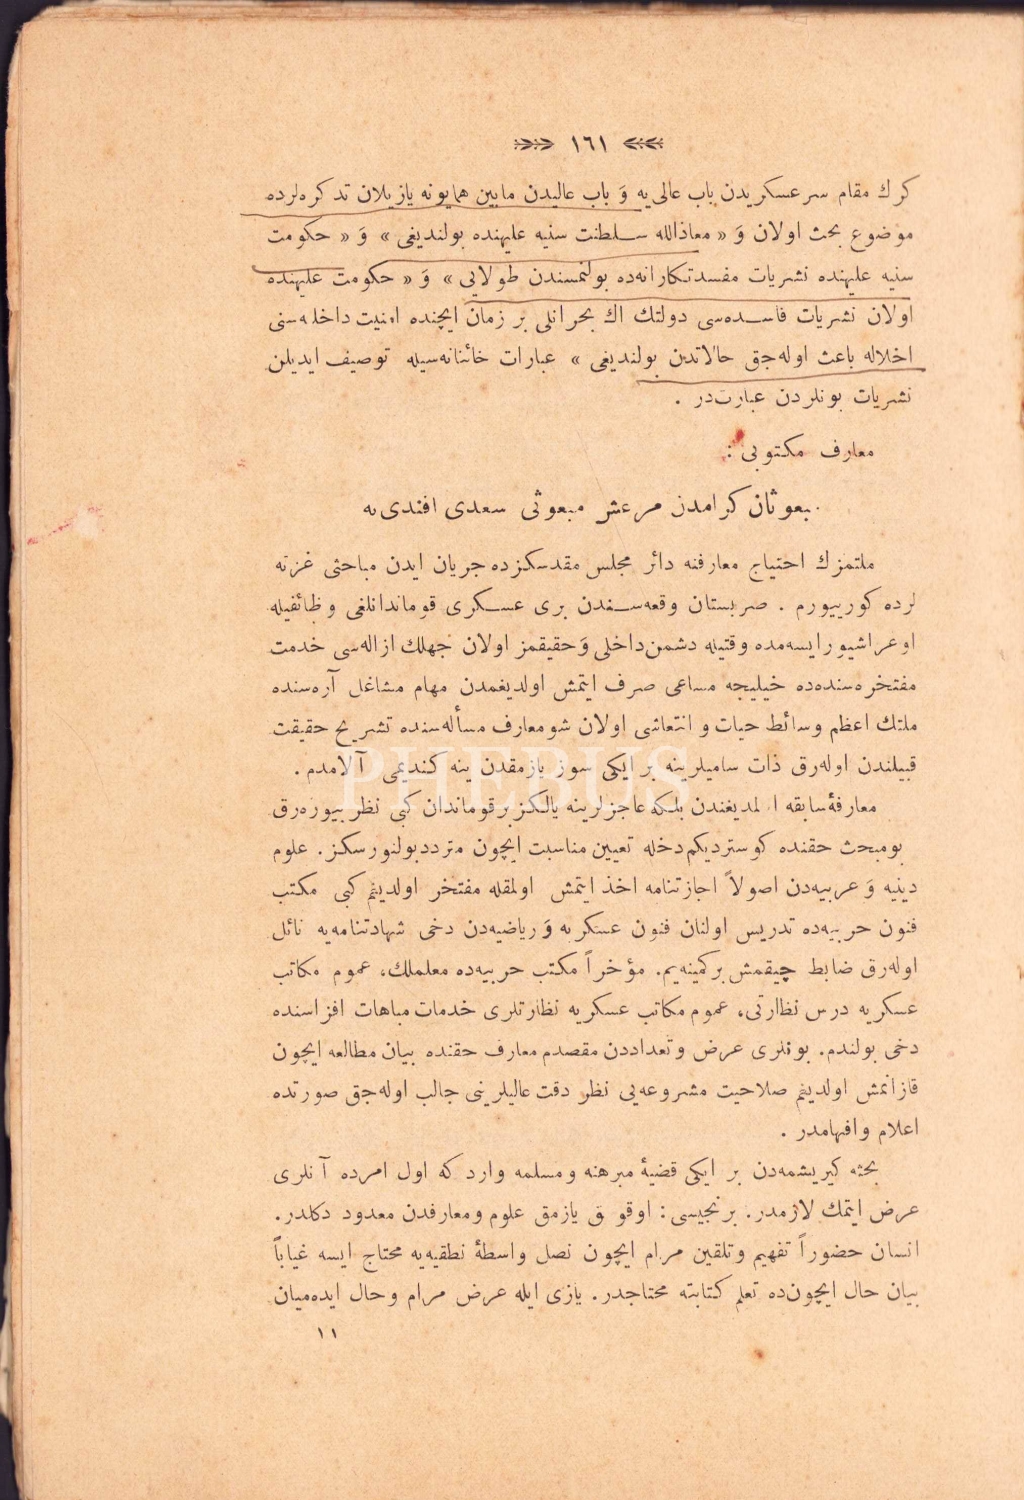 ١٦١
كرك مقام سر عسكريدن باب عالی‌یه وَ باب عاليدن مابين همايونه يازيلان تذكره‌لرده
موضوع بحث اولان وَ « معاذالله سلطنت سنيه عليهنده بولنديغی » وَ « حكومت
سنيه عليهنده نشريات مفسدتكارانه‌ده بولنمسندن طولایی » وَ « حكومت عليهنده
اولان نشريات فاسده‌سی دولتك اك بحرانلی بر زمان ايچنده امنيت داخله‌سنی
اخلاله باعث اوله‌جق حالاتدن بولنديغی » عبارات خائنانه‌سيله توصيف ايديلن
نشريات بونلردن عبارتدر .
معارف مكتوبی :
مبعوثان كرامدن مرعش مبعوثی سعدی افندی‌يه
ملتمزك احتياج معارفنه دائر مجلس مقدسكزده جريان ايدن مباحثی غزته
لرده كورييورم . صربستان وقعه‌سندن بری عسكری قوماندانلغی وظائفيله
اوغراشيور ايسه‌مده وقتيله دشمن داخلی وَ حقيقمز اولان جهلك ازاله‌سی خدمت
مفتخره‌سنده‌ده خيليجه مساعی صرف ايتمش اولديغمدن مهام مشاغل آره‌سنده
ملتك اعظم وسائط حيات و انتعاشی اولان شو معارف مسأله‌سنده تشريح حقيقت
قبيلندن اوله‌رق ذات ساميلرينه بر ايكی سوز يازمقدن ينه كنديمی آلامدم .
معارفۀ سابقه اولمديغندن بلكه عاجزلرينه يالكز برقوماندان كبی نظر بيوره‌رق
بومبحث حقنده كوسترديكم دخله تعيين مناسبت ايچون متردد بولنورسكز . علوم
دينيه وَ عربيه‌دن اصولاً اجازتنامه اخذ ايتمش اولمقله مفتخر اولديغم كبی مكتب
فنون حربيه‌ده تدريس اولنان فنون عسكريه وَ رياضيه‌دن دخی شهادتنامه‌يه نائل
اوله‌رق ضابط چيقمش بركمينه‌يم. مؤخراً مكتب حربيه‌ده معلملك، عموم مكاتب
عسكريه درس نظارتی، عموم مكاتب عسكريه نظارتلری خدمات مباهات افزاسنده
دخی بولندم. بونلری عرض وتعداددن مقصدم معارف حقنده بيان مطالعه ايچون
قازانمش اولديغم صلاحيت مشروعه‌یی نظر دقت عاليلرينی جالب اوله‌جق صورتده
اعلام وافهامدر .
بحثه كيريشمه‌دن بر ايكی قضيۀ مبرهنه ومسلمه وارد كه اول امرده آنلری
عرض ايتمك لازمدر. برنجيسی : اوقومق يازمق علوم ومعارفدن معدود دكلدر.
انسان حضوراً تفهيم وتلقين مرام ايچون نصل واسطۀ نطقيه‌يه محتاج ايسه غياباً
بيان حال ايچون‌ده تعلم كتابته محتاجدر. يازی ايله عرض مرام وحال ايده‌ميان
١١
PHEBUS